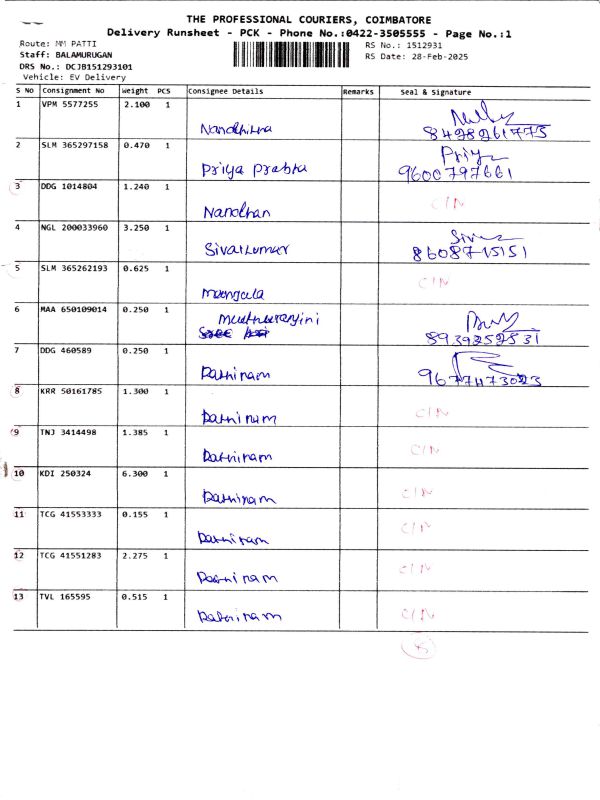 THE PROFESSIONAL COURIERS, COIMBATORE
Delivery Runsheet - PCK - Phone No.:0422-3505555 - Page No.:1
Route: MM PATTI
RS No.: 1512931
Staff: BALAMURUGAN
RS Date: 28-Feb-2025
DRS No.: DCJB151293101
Vehicle: EV Delivery
S No Consignment No Weight PCS Consignee Details Remarks Seal & Signature
1 VPM 5577255 2.100 1
Nandhitha
8428261775
2 SLM 365297158 0.470 1
Priya Prabha Priya
9600797661
3 DDG 1014804 1.240 1
Nandhan C/N
4 NGL 200033960 3.250 1
Sivakumar 8608715151
5 SLM 365262193 0.625 1
Mangala C/N
6 MAA 650109014 0.250 1
Muthuranjini
8939252831
7 DDG 460589 0.250 1
Rathinam 9677473023
8 KRR 50161785 1.300 1
Rathinam C/N
9 TNJ 3414498 1.385 1
Rathinam C/N
10 KDI 250324 6.300 1
Rathinam C/N
11 TCG 41553333 0.155 1
Rathinam C/N
12 TCG 41551283 2.275 1
Rathinam C/N
13 TVL 165595 0.515 1
Rathinam C/N